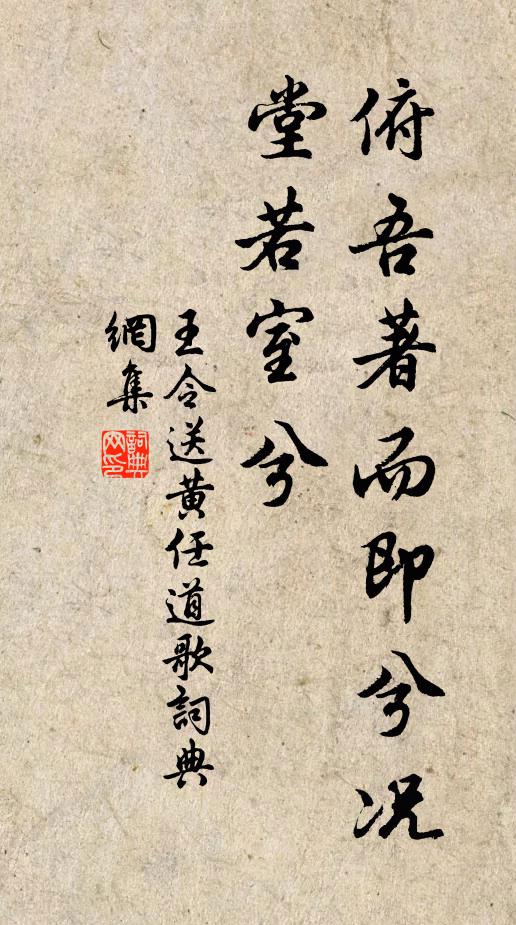 俯吾著而即兮况
堂若室兮
王令送黄任道歌詞典
網集
詞典網印